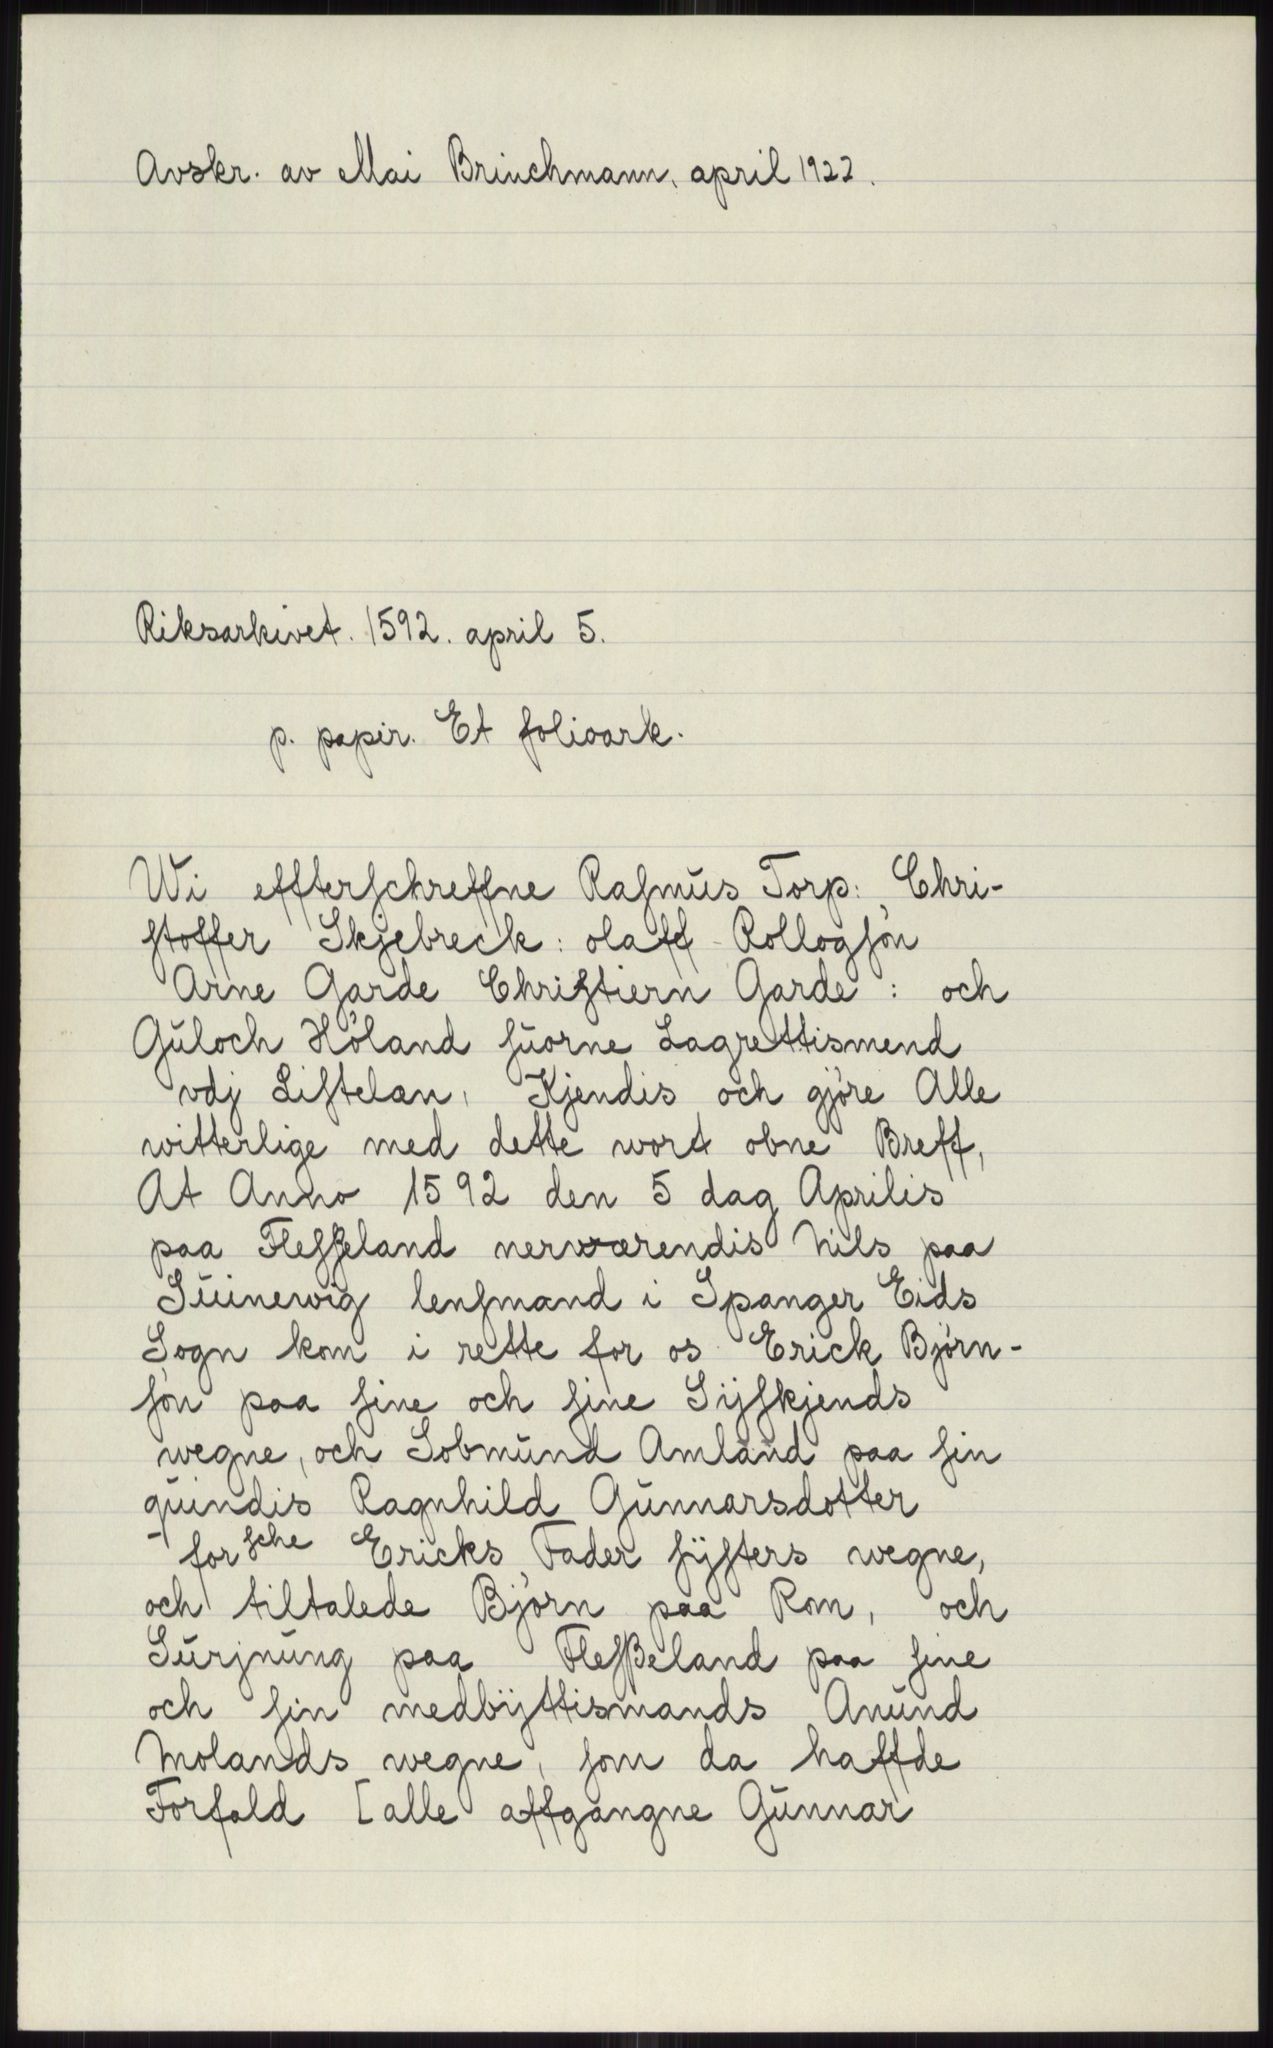 Avskr. av Mai Brinchmann, april 1922.
Riksarkivet. 1592. april 5.
p. papir. Et folioark.
Wi effterſchreffne Raſmūs Torp: Chri-
ſtoffer Skjebreck: olaff Rollogſön
Arne Garde Chriſtiern Garde: och
Gūloch Höland ſūorne Lagrettismend
vdj Liſtelæn, Kjendis och gjöre Alle
witterlige med dette wort obne Breff,
At Anno 1592 den 5 dag Aprilis
paa Fleſſeland nerwærendis Nils paa
Sūinewig lenſmand i Spanger Eids
Sogn kom i rette for os Erick Björn-
ſön paa ſine och ſine Sÿſkjends
wegne, och Sobmūnd Amland paa ſin
qūindis Ragnhild Gūnnarsdotter
forſche Ericks Fader ſÿſters wegne,
och tiltalede Björn paa Rom, och
Sūrjnūng paa Fleſßeland paa ſine
och ſin medbÿttismands Anūnd
Molands wegne, ſom da haffde
Forfald [alle affgangne Gūnnar